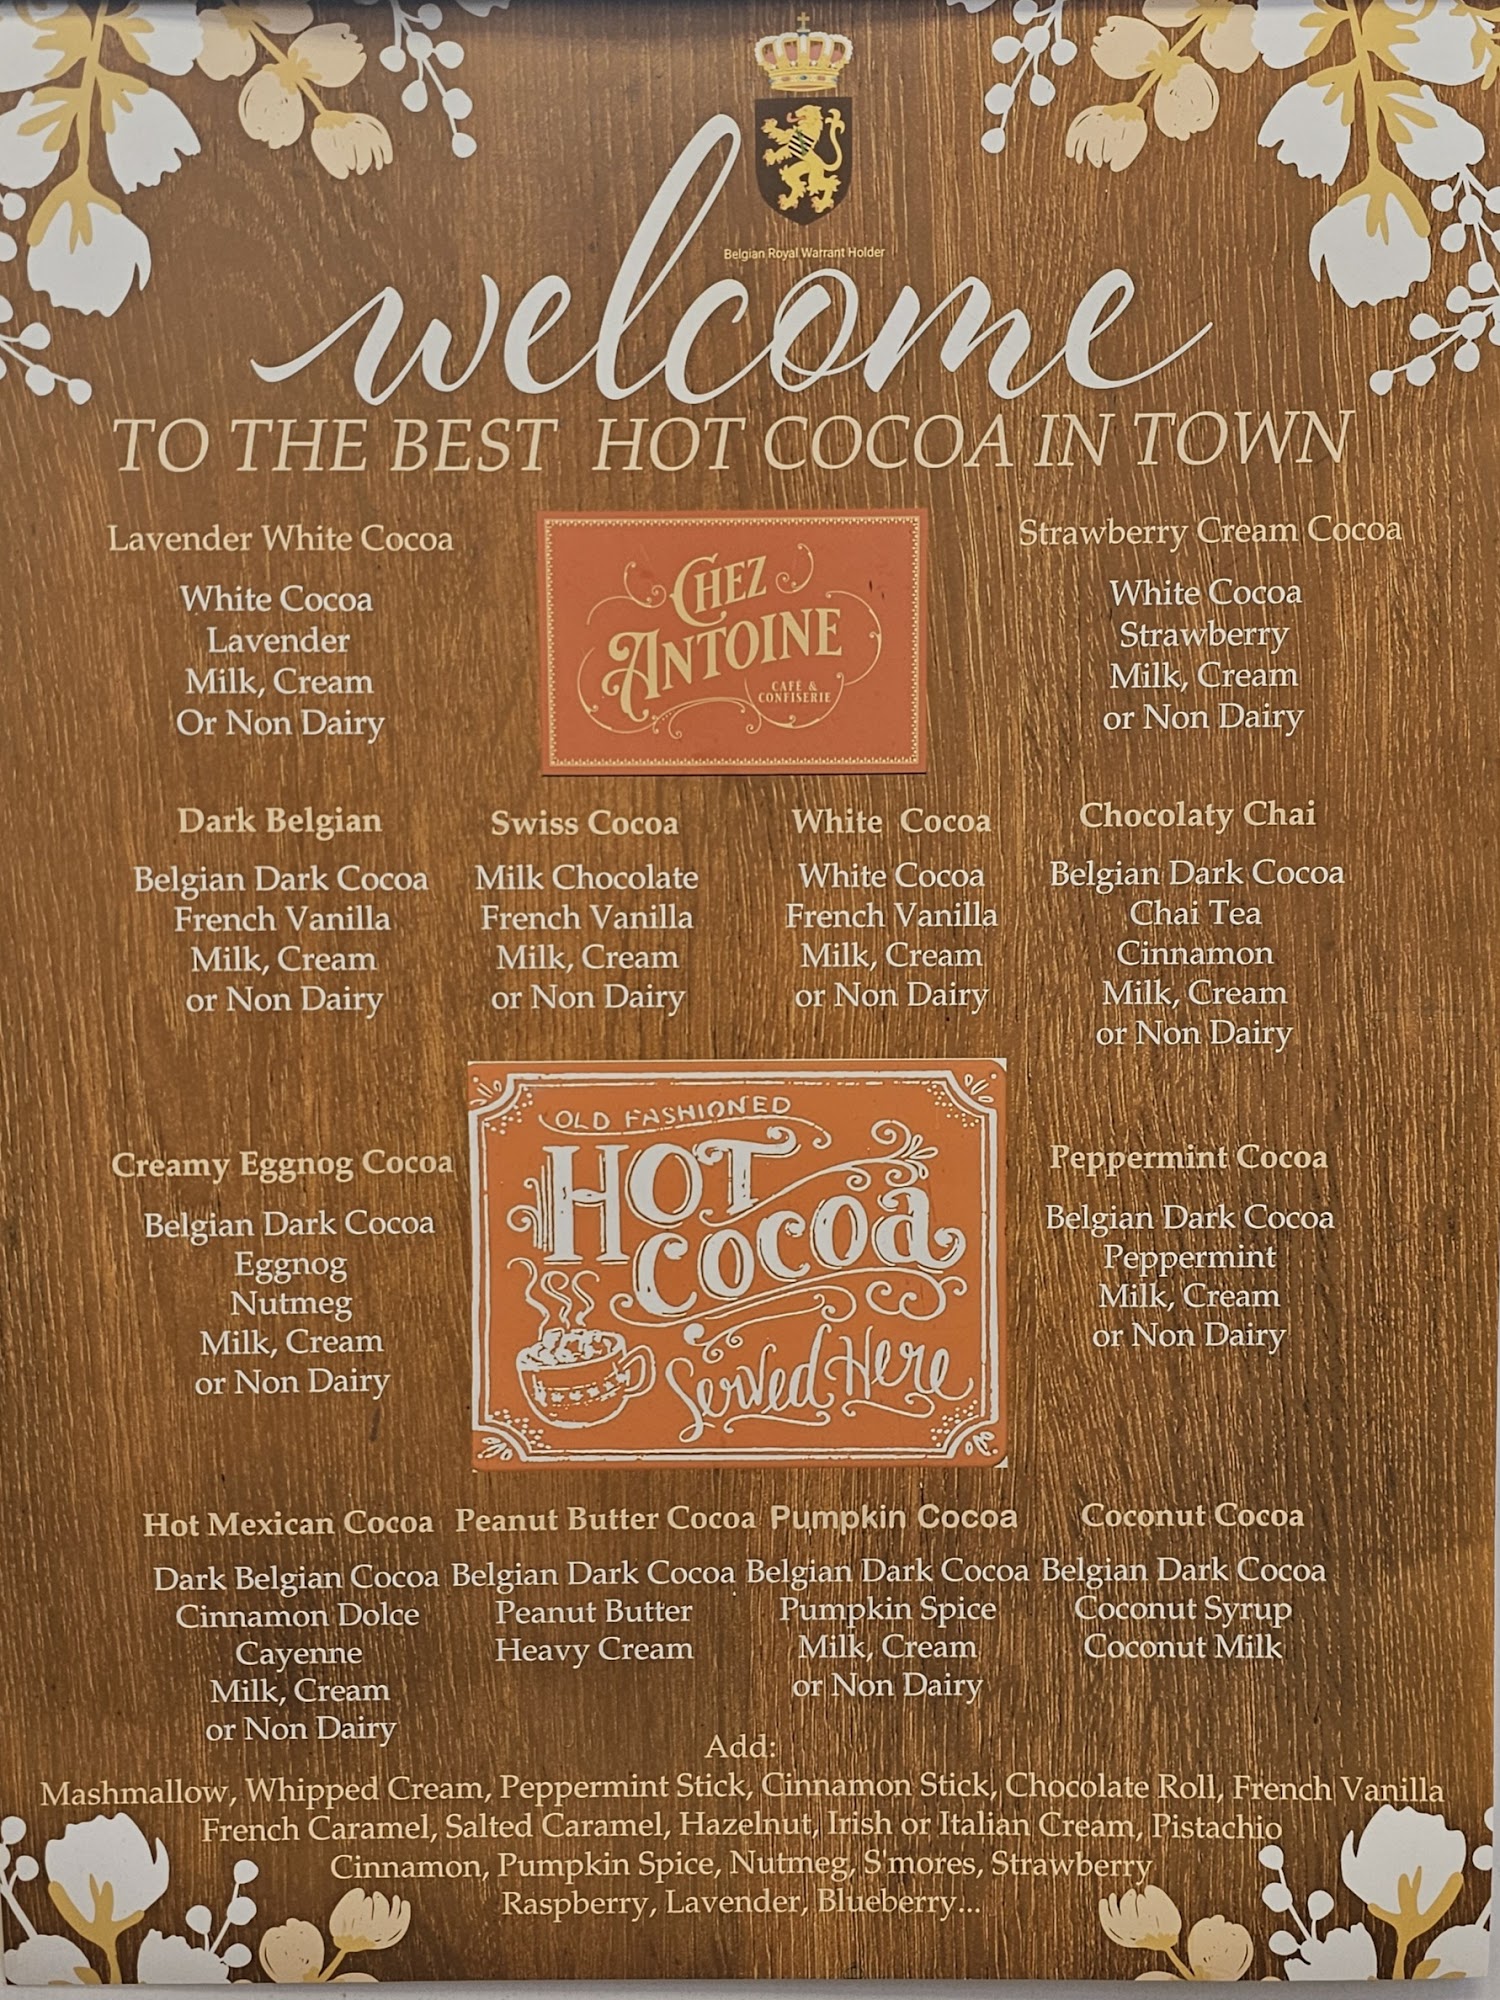 Belgian Royal Warrant Holder
welcome
TO THE BEST HOT COCOA IN TOWN
Lavender White Cocoa
White Cocoa
Lavender
Milk, Cream
Or Non Dairy
CHEZ
ANTOINE
CAFÉ &
CONFISERIE
Strawberry Cream Cocoa
White Cocoa
Strawberry
Milk, Cream
or Non Dairy
Dark Belgian
Belgian Dark Cocoa
French Vanilla
Milk, Cream
or Non Dairy
Swiss Cocoa
Milk Chocolate
French Vanilla
Milk, Cream
or Non Dairy
White Cocoa
White Cocoa
French Vanilla
Milk, Cream
or Non Dairy
Chocolaty Chai
Belgian Dark Cocoa
Chai Tea
Cinnamon
Milk, Cream
or Non Dairy
Creamy Eggnog Cocoa
Belgian Dark Cocoa
Eggnog
Nutmeg
Milk, Cream
or Non Dairy
OLD FASHIONED
HOT
COCOA
Served Here
Peppermint Cocoa
Belgian Dark Cocoa
Peppermint
Milk, Cream
or Non Dairy
Hot Mexican Cocoa
Dark Belgian Cocoa
Cinnamon Dolce
Cayenne
Milk, Cream
or Non Dairy
Peanut Butter Cocoa
Belgian Dark Cocoa
Peanut Butter
Heavy Cream
Pumpkin Cocoa
Belgian Dark Cocoa
Pumpkin Spice
Milk, Cream
or Non Dairy
Coconut Cocoa
Belgian Dark Cocoa
Coconut Syrup
Coconut Milk
Add:
Mashmallow, Whipped Cream, Peppermint Stick, Cinnamon Stick, Chocolate Roll, French Vanilla
French Caramel, Salted Caramel, Hazelnut, Irish or Italian Cream, Pistachio
Cinnamon, Pumpkin Spice, Nutmeg, S'mores, Strawberry
Raspberry, Lavender, Blueberry...